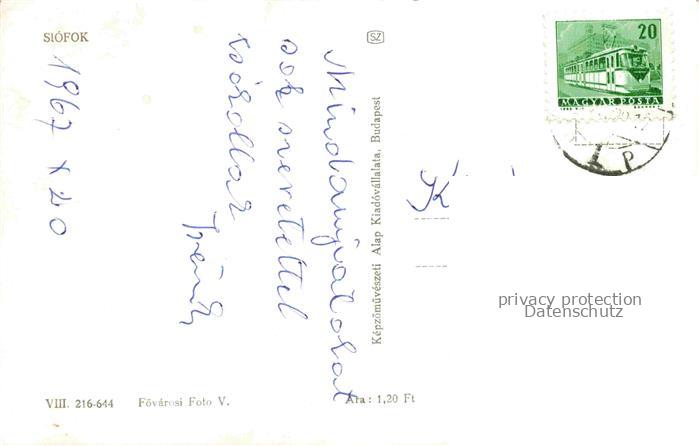 SIÓFOK
1967 X 20
Mindanyiatokat
sok szeretettel
csókollak
Irénke
SZ
Képzőművészeti Alap Kiadóvállalata, Budapest
VIII. 216-644
Fővárosi Foto V.
Ára: 1,20 Ft
20
MAGYAR POSTA
K
privacy protection
Datenschutz